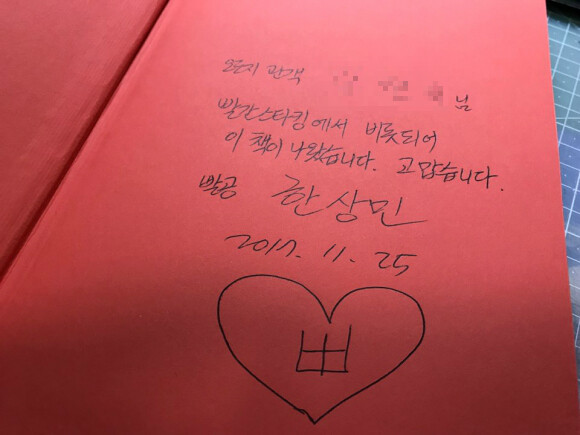 관객 님
빨간스타킹에서 비롯되어
이 책이 나왔습니다. 고맙습니다.
빨공 한상민
2017. 11. 25
ㅃ